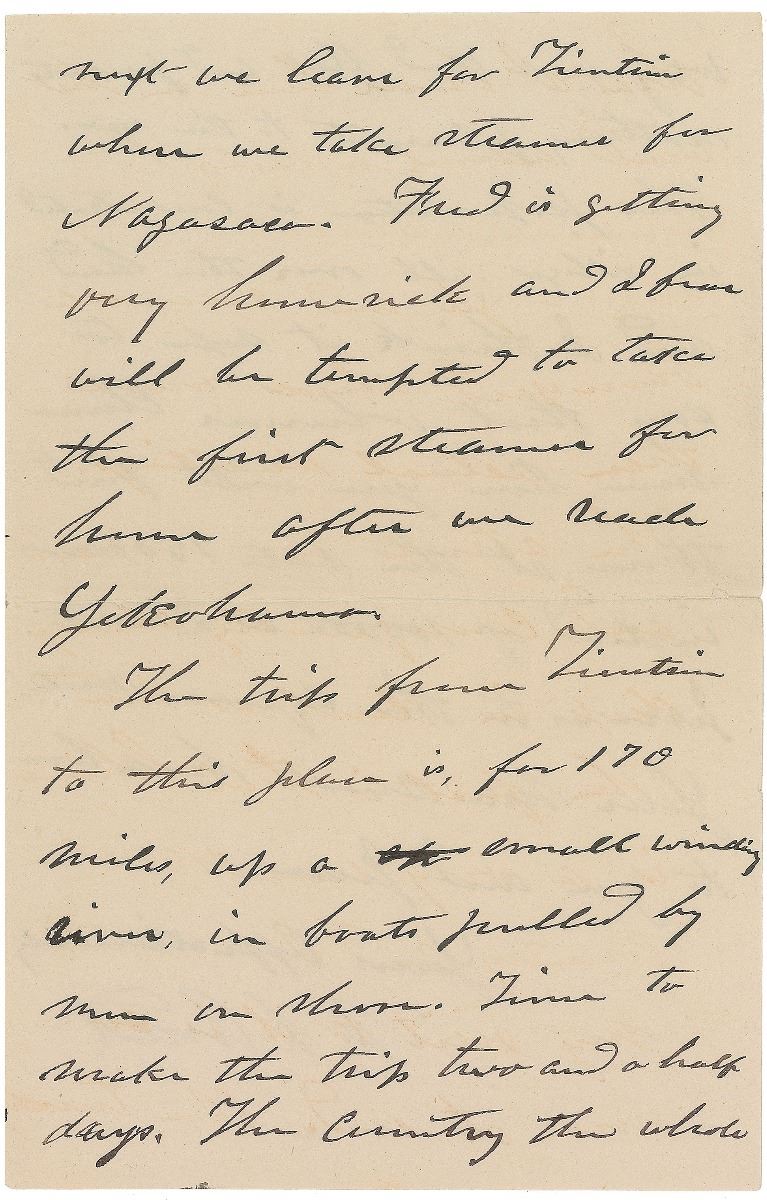 next we leave for Tientsin
where we take steamer for
Nagasaca. Fred is getting
very homesick and I fear
will be tempted to take
the first steamer for
home after we reach
Yokohama.
The trip from Tientsin
to this place is, for 170
miles, up a small winding
river, in boats pulled by
men on shore. Time to
make the trip two and a half
days. The country the whole